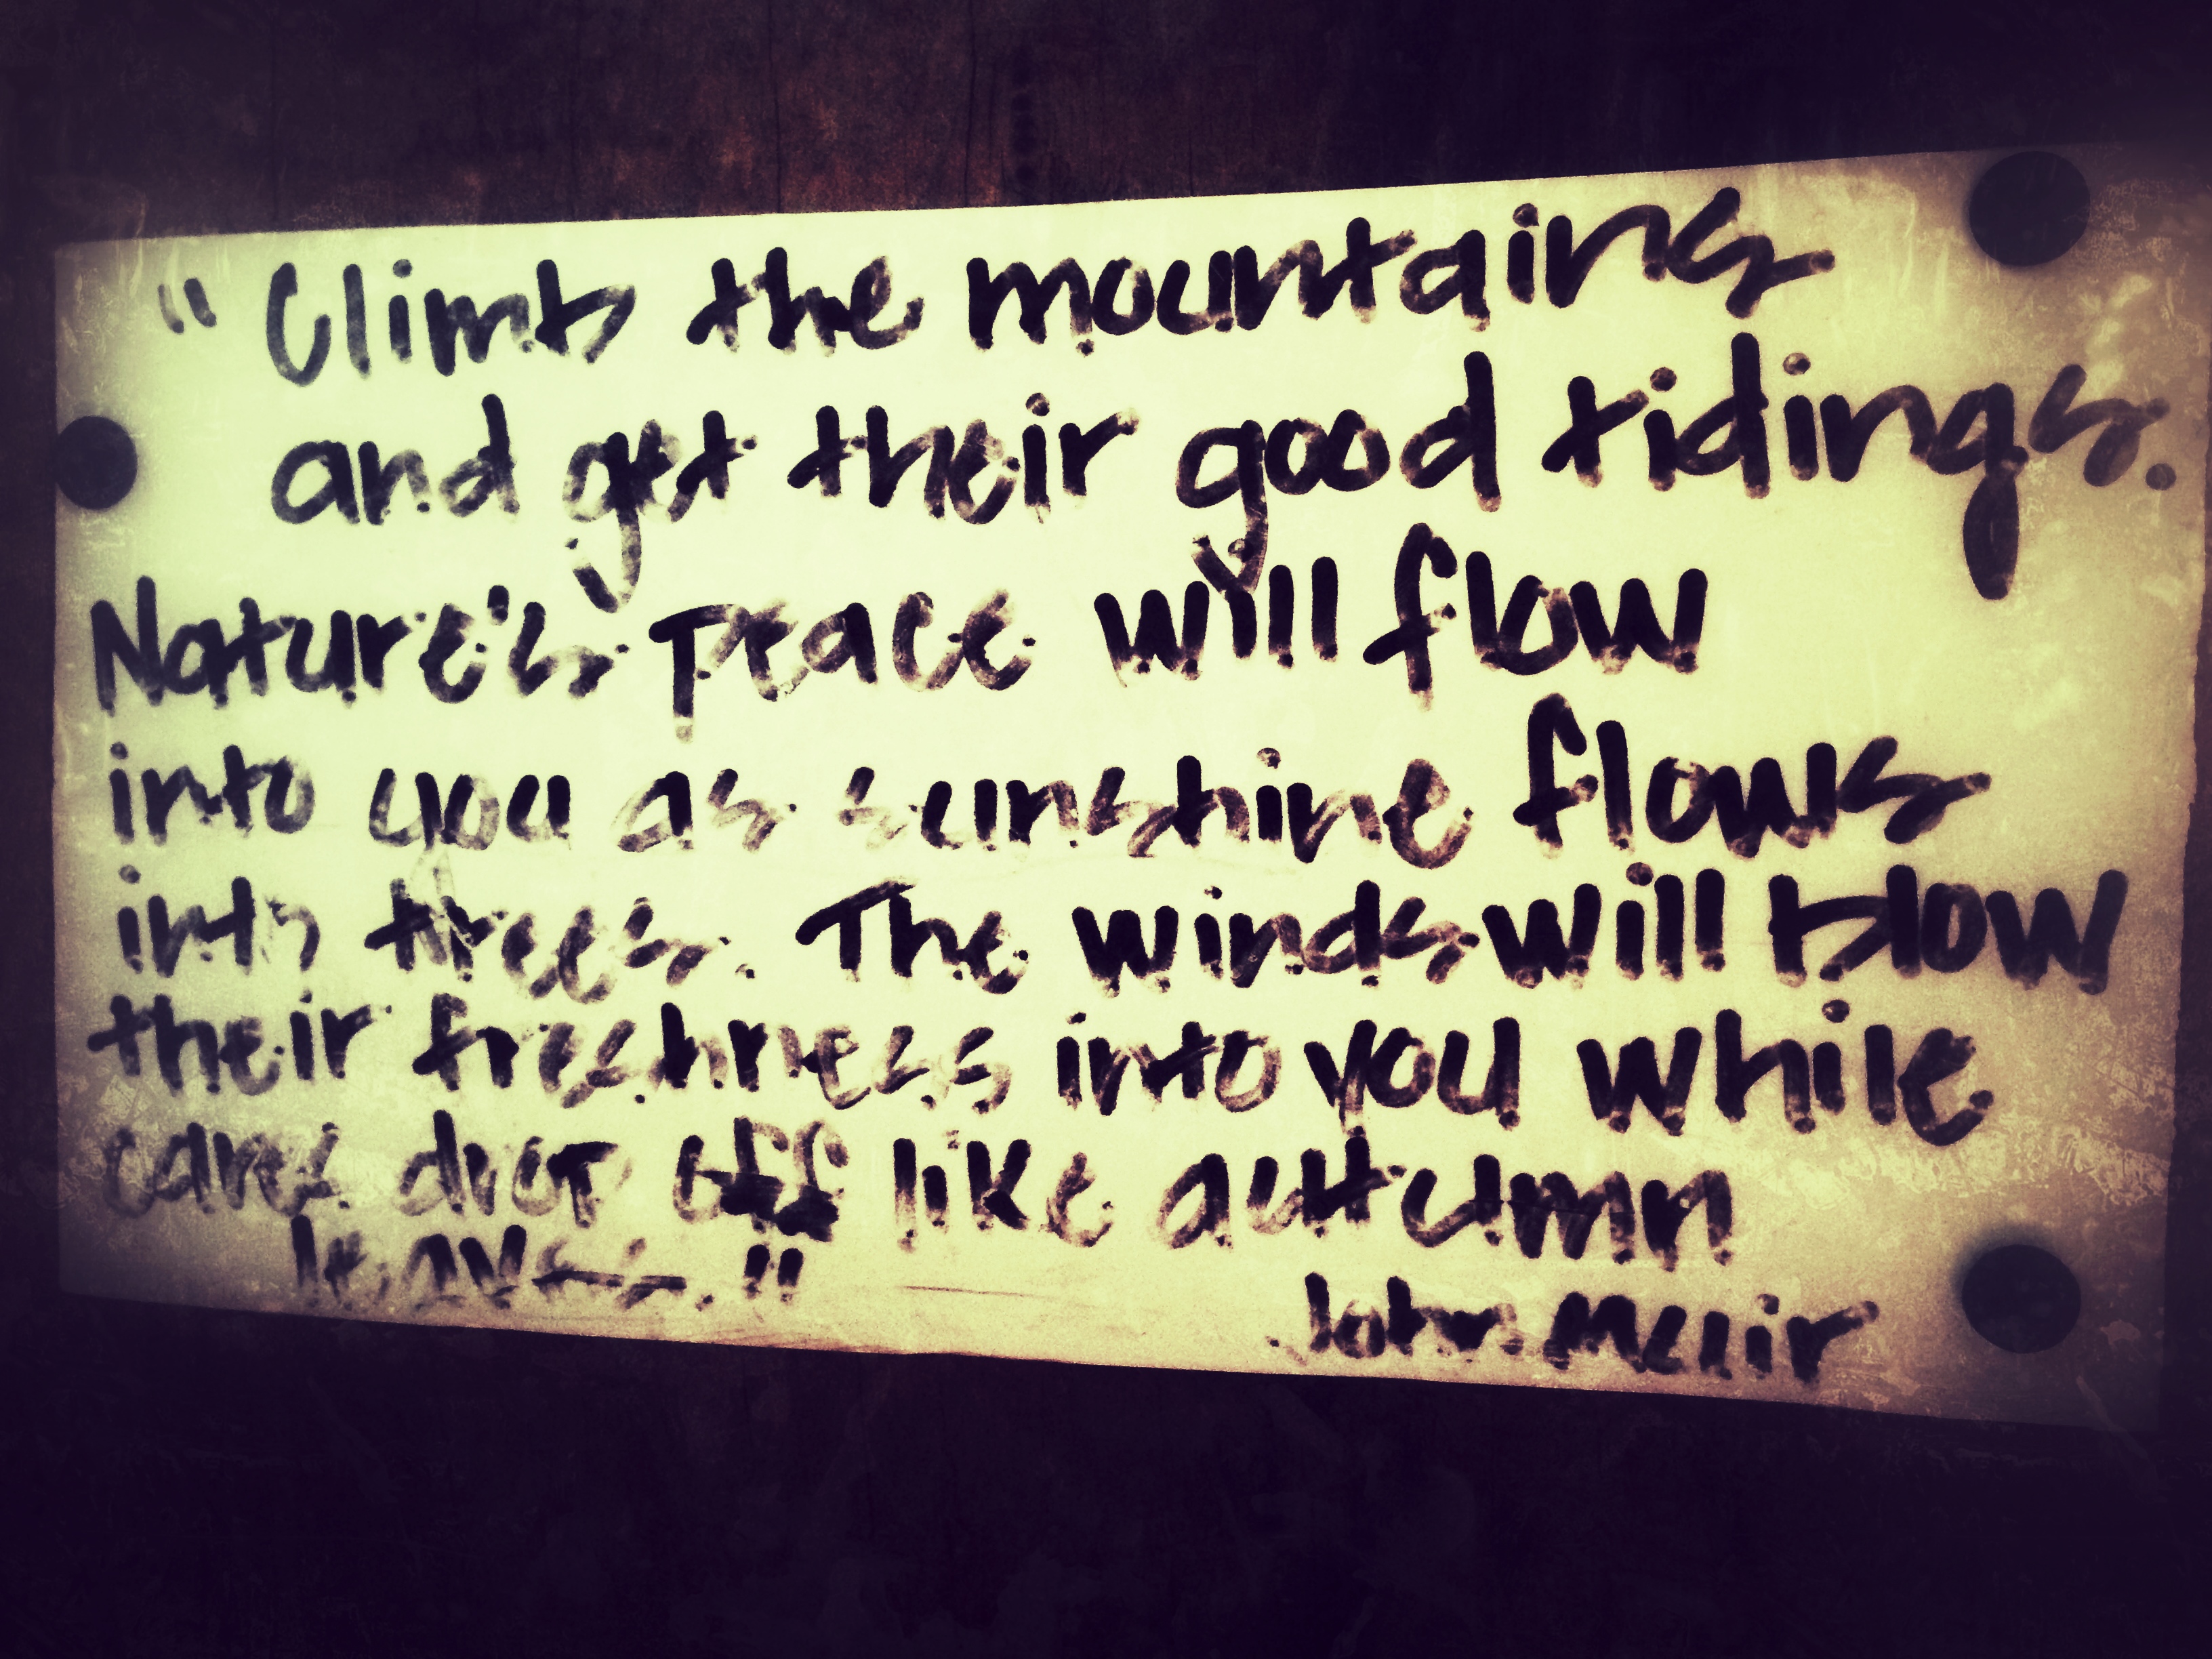 "Climb the mountains
and get their good tidings.
Nature's peace will flow
into you as sunshine flows
into trees. The winds will blow
their freshness into you while
cares drop off like autumn
leaves."
John Muir